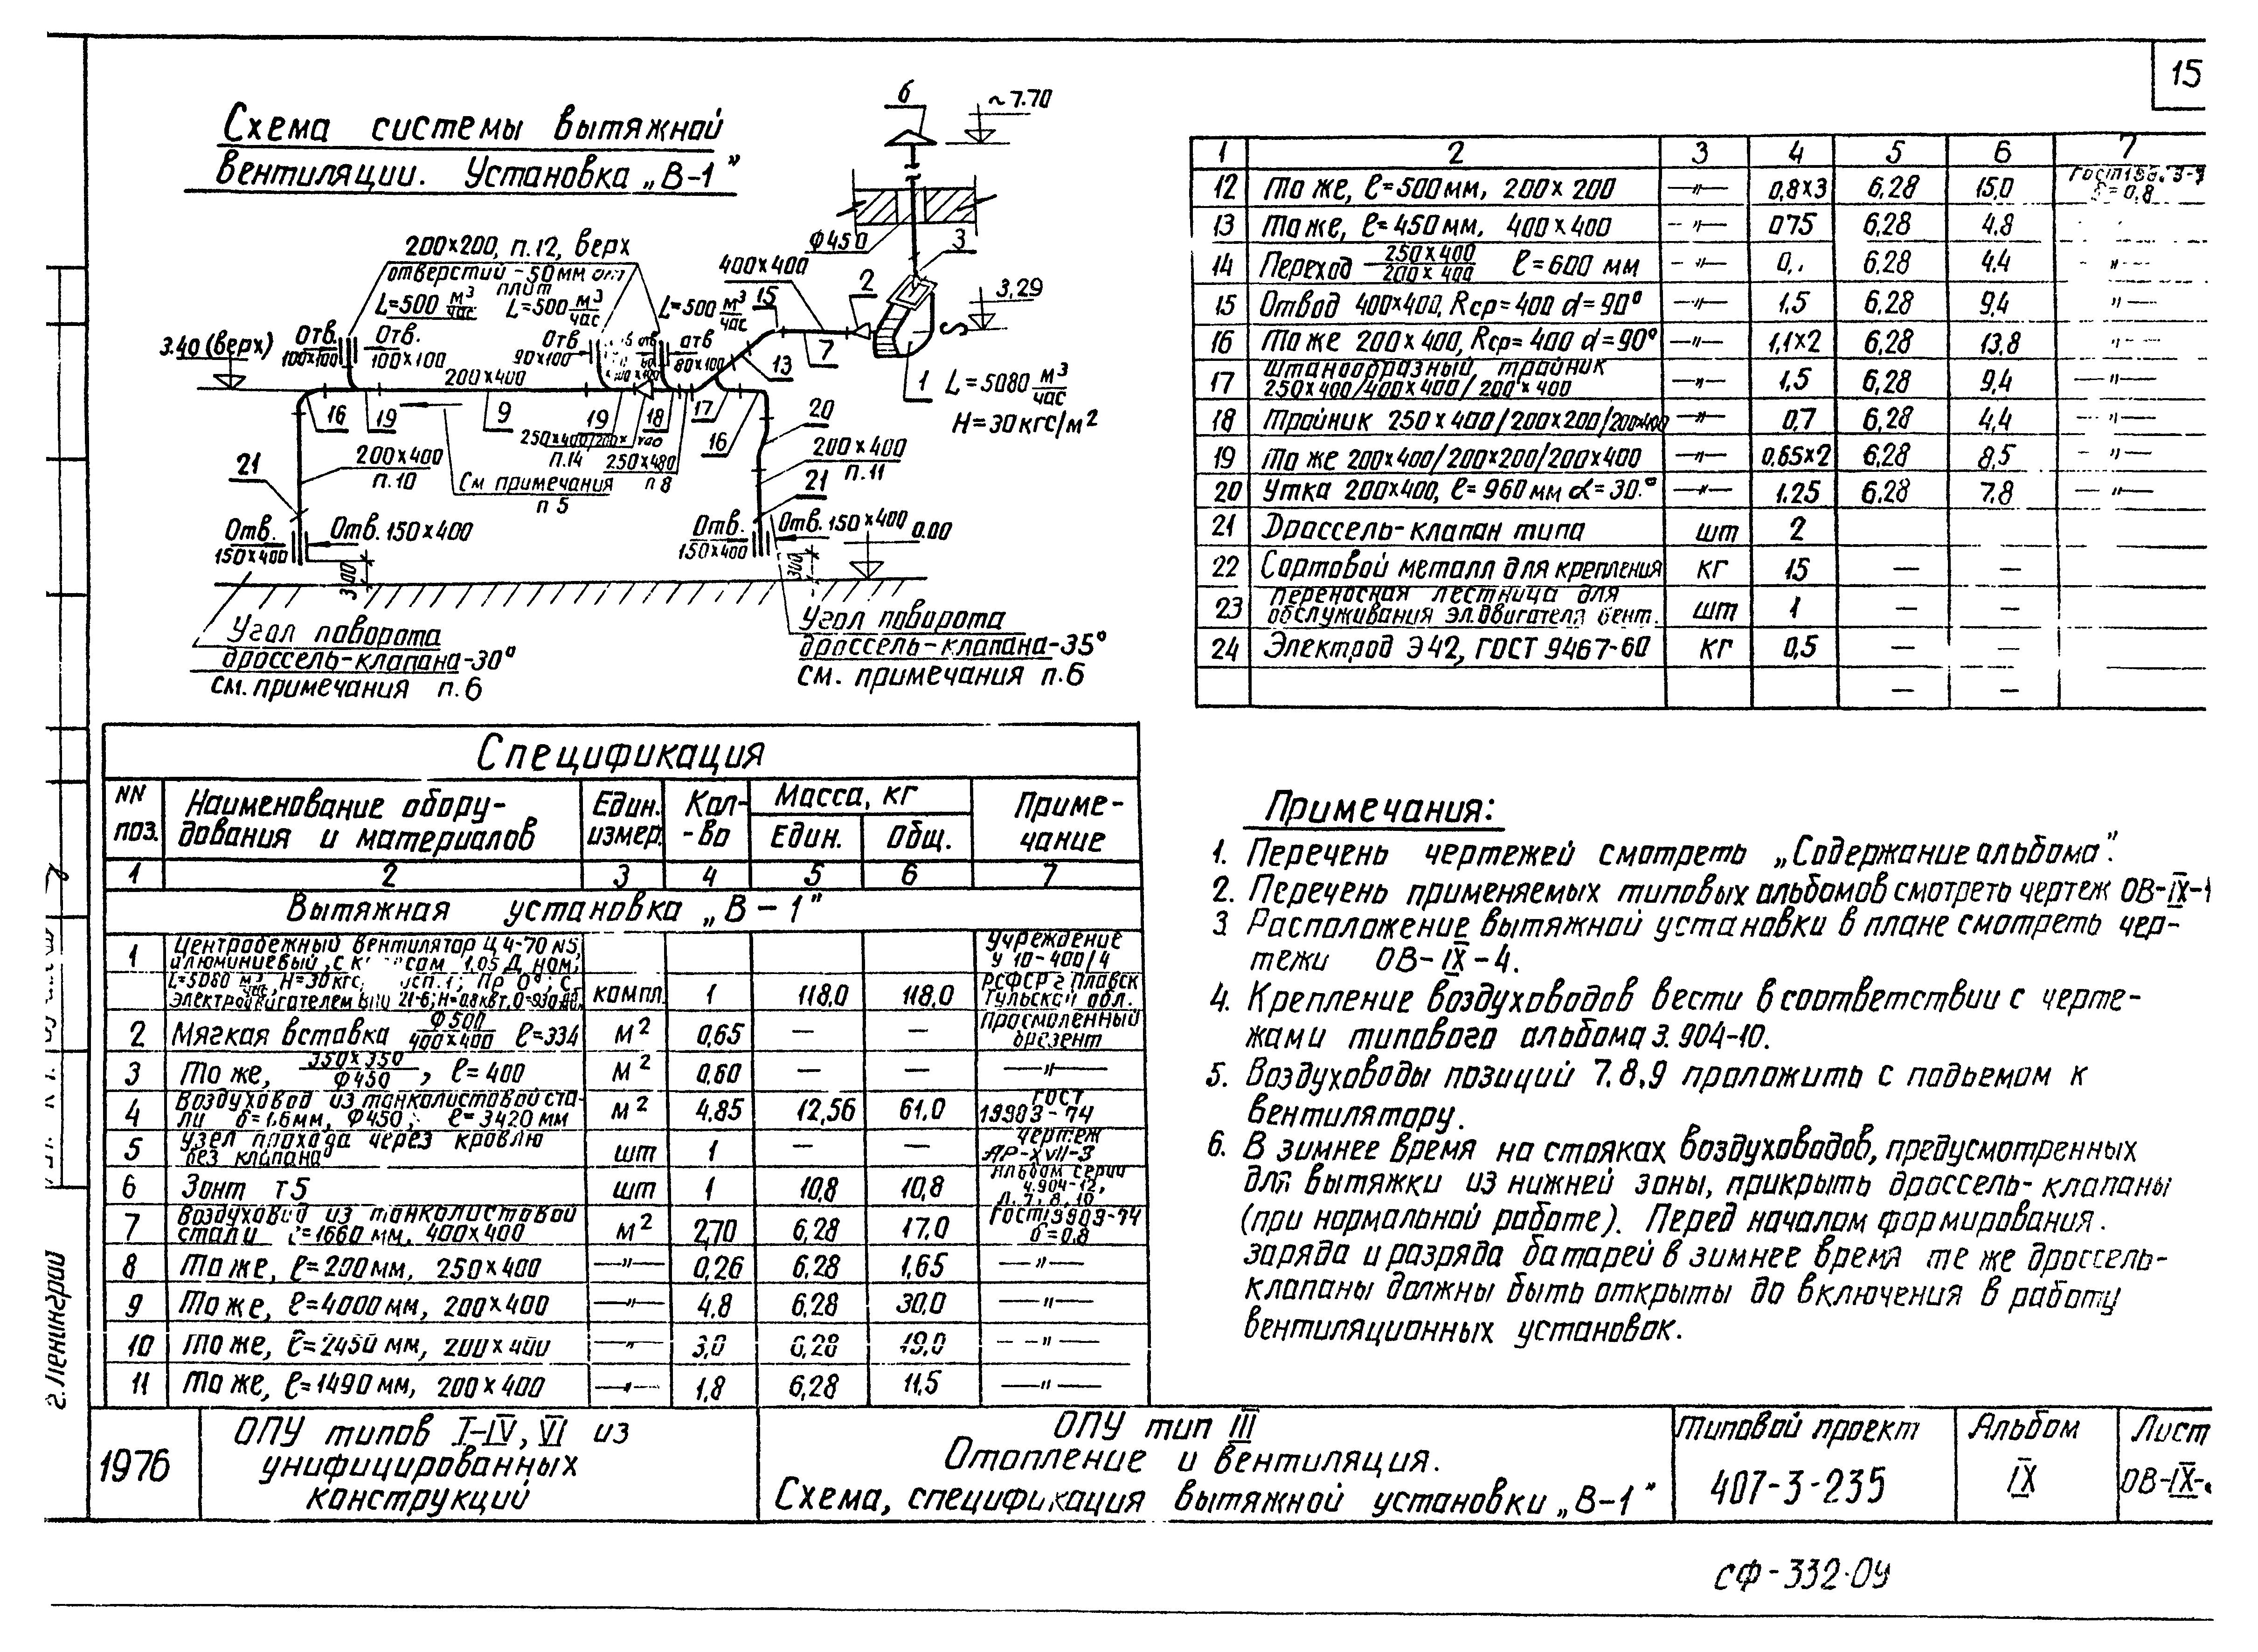 15
Схема системы вытяжной
вентиляции. Установка „В-1"
6
~7.70
Ф450
3
200×200, п.12, верх
отверстий -50мм от
плит
400×400
2
3,29
L=500 м³/час
L=500 м³/час
L=500 м³/час
15
3.40 (верх)
Отв. 100×100
Отв. 100×100
Отв 90×100
отв 80×100
7
13
200×400
1 L=5080 м³/час
H=30кгс/м²
16
19
9
19
18
17
16
20
п.14
250×480
п 8
21
200×400
п.10
См примечания
п 5
200×400
п.11
21
Отв. 150×400
Отв. 150×400
Отв. 150×400
Отв. 150×400
0.00
300
300
Угол поворота
дроссель-клапана-30°
см. примечания п.6
Угол поворота
дроссель-клапана-35°
см. примечания п.6
Спецификация
NN поз. Наименование оборудования и материалов Един. измер. Кол-во Масса, кг Един. Общ. Примечание
1 2 3 4 5 6 7
Вытяжная установка „В-1"
1 Центробежный вентилятор Ц4-70 N5,
алюминиевый, с 1,05 Д ном,
L=5080 м³/час, H=30кгс, исп.1; Пр 0°; с
электродвигателем компл. 1 118,0 118,0
Учреждение
У 10-400/4
РСФСР г Плавск
Тульской обл.
2 Мягкая вставка Ф500/400×400 ℓ=334 м² 0,65 — — Просмоленный брезент
3 То же, 350×350/Ф450, ℓ=400 м² 0,60 — — —"—
4 Воздуховод из тонколистовой стали δ=1,6мм, Ф450, ℓ=3420 мм м² 4,85 12,56 61,0 ГОСТ 19903-74
5 Узел прохода через кровлю без клапана шт 1 — — чертеж АР-XVII-3
6 Зонт т5 шт 1 10,8 10,8 Альбом серии 4.904-12, л. 7, 8, 10
7 Воздуховод из тонколистовой стали ℓ=1660 мм, 400×400 м² 2,70 6,28 17,0 ГОСТ 19903-74 δ=0,8
8 То же, ℓ=200мм, 250×400 —"— 0,26 6,28 1,65 —"—
9 То же, ℓ=4000мм, 200×400 —"— 4,8 6,28 30,0 —"—
10 То же, ℓ=2450 мм, 200×400 —"— 3,0 6,28 19,0 —"—
11 То же, ℓ=1490 мм, 200×400 —"— 1,8 6,28 11,5 —"—
1 2 3 4 5 6 7
12 То же, ℓ=500мм, 200×200 —"— 0,8×3 6,28 15,0 δ=0,8
13 То же, ℓ=450мм, 400×400 —"— 075 6,28 4,8
14 Переход 250×400/200×400 ℓ=600 мм —"— 6,28 4,4 —"—
15 Отвод 400×400, Rср=400 α=90° —"— 1,5 6,28 9,4 "—
16 То же 200×400, Rср=400 α=90° —"— 1,1×2 6,28 13,8 "—
17 Штанообразный тройник 250×400/400×400/200×400 —"— 1,5 6,28 9,4 —"—
18 Тройник 250×400/200×200/200×400 —"— 0,7 6,28 4,4 "—
19 То же 200×400/200×200/200×400 —"— 0,65×2 6,28 8,5 —"—
20 Утка 200×400, ℓ=960мм α=30° —"— 1.25 6,28 7.8 —"—
21 Дроссель-клапан типа шт 2
22 Сортовой металл для крепления кг 15 — —
23 Переносная лестница для обслуживания эл.двигателя вент. шт 1 — —
24 Электрод Э42, ГОСТ 9467-60 кг 0,5 — —
— —
Примечания:
1. Перечень чертежей смотреть „Содержание альбома".
2. Перечень применяемых типовых альбомов смотреть чертеж ОВ-IX-1
3 Расположение вытяжной установки в плане смотреть чер-
тежи ОВ-IX-4.
4. Крепление воздуховодов вести в соответствии с черте-
жами типового альбома 3.904-10.
5. Воздуховоды позиций 7.8,9 проложить с подъемом к
вентилятору.
6. В зимнее время на стояках воздуховодов, предусмотренных
для вытяжки из нижней зоны, прикрыть дроссель-клапаны
(при нормальной работе). Перед началом формирования.
заряда и разряда батарей в зимнее время те же дроссель-
клапаны должны быть открыты до включения в работу
вентиляционных установок.
г. Ленинград
1976
ОПУ типов I-IV, VI из
унифицированных
конструкций
ОПУ тип III
Отопление и вентиляция.
Схема, спецификация вытяжной установки „В-1"
Типовой проект
407-3-235
Альбом
IX
Лист
ОВ-IX-
сф-332-09